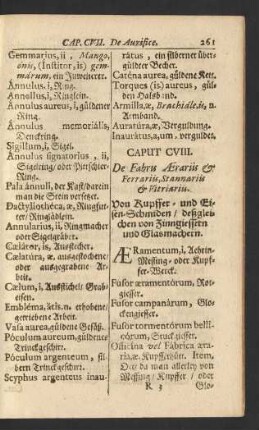 CAP. CVII. De Aurifice. 261
Gemmarius, ii, Mango,
ónis, (Institor, is) gem-
márum, ein Juwelierer.
Ánnulus, i, Ring.
Ánnulus, i, Ringlein.
Ánnulus aureus, i, güldener
Ring.
Ánnulus memoriális,
Denckring.
Sigillum, i, Sigel.
Ánnulus signatorius, ii,
Sigelring / oder Pittschier-
Ring.
Pala ánnuli, der Kast / darein
man die Stein versetzet.
Dactyliothéca, æ, Ringfut-
ter / Ringlädlein.
Annularius, ii, Ringmacher
oder Sigelgräber.
Cælátor, is, Ausstecher.
Cælatúra, æ, ausgestochene
oder ausgegrabene Ar-
beit.
Cælum, i, Ausstichel / Grab-
eisen.
Embléma, átis, n. erhobene /
getriebene Arbeit.
Vasa aurea, güldene Gefäß.
Póculum aureum, güldenes
Trinckgeschirr.
Póculum argenteum, sil-
bern Trinckgeschirr.
Scyphus argenteus inau-
rátus, ein silberner über-
güldter Becher.
Caténa aurea, güldene Kett.
Torques (is) aureus, gül-
den Halsband.
Armilla, æ, Brachiále, is, n.
Armband.
Auratúra, æ, Verguldung.
Inaurátus, a, um, verguldt.
CAPUT CVIII.
De Fabris Ærariis &
Ferrariis, Stannariis
& Vitriariis.
Von Kupffer- und Ei-
sen-Schmiden / deßglei-
chen von Zinngiessern
und Glasmachern.
ÆRamentum, i, Aehrin-
Messing- oder Kupf-
fer-Werck.
Fusor æramentórum, Rot-
giesser.
Fusor campanárum, Glo-
ckengiesser.
Fusor tormentórum belli-
córum, Stuckgiesser.
Officina vel Fabrica æra-
ria, æ, Kupfferhütt. Item,
Da man allerley von
Messing / Kupffer / oder
R 3 Glo-